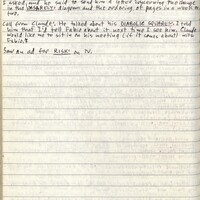 I asked, and he said to send him a letter concerning the change
in the diagram and the ordering of pages in a week or
two.
Call from Claude: He talked about his DIABOLIC SQUARES. I told
him that I'd tell Fabio about it next time I see him. Claude
would like me to sit in on his meeting (if it comes about) with
Fabio.
Saw an ad for RISK! on TV.